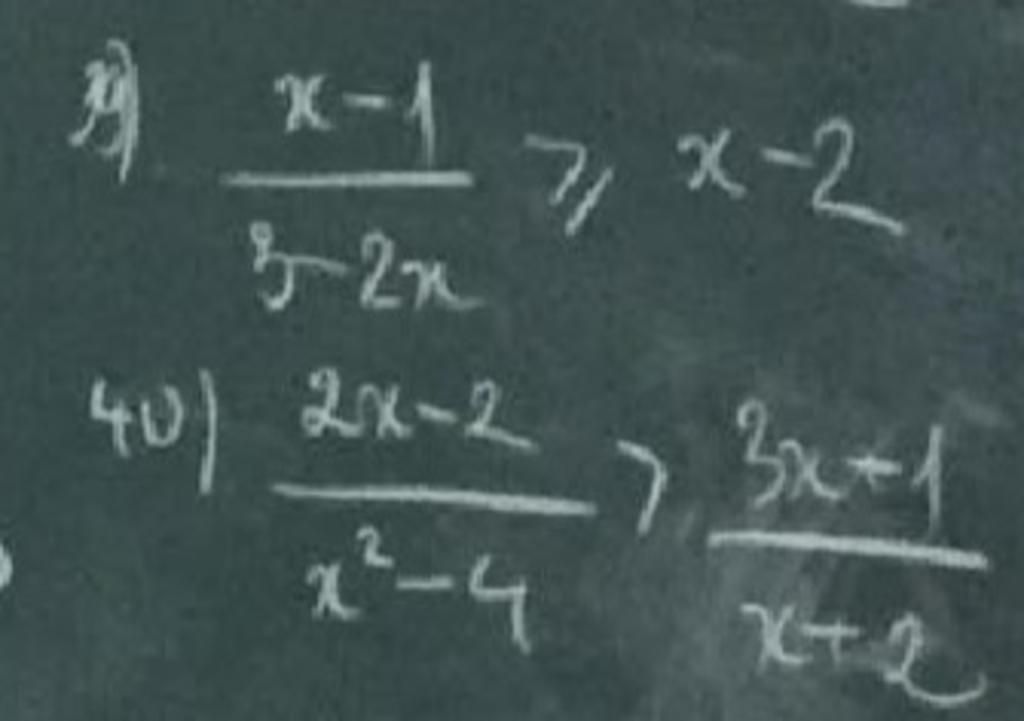 39) (x-1)/(3-2x) ⩾ x-2
40) (2x-2)/(x²-4) > (3x+1)/(x+2)